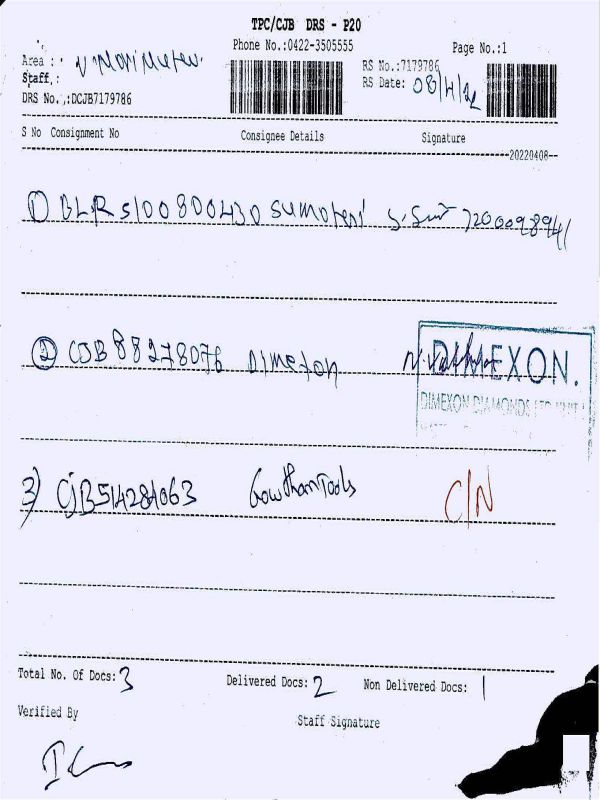 TPC/CJB DRS - P20
Phone No.:0422-3505555 Page No.:1
Area :
RS No.:7179786
Staff :
RS Date: 08/4/22
DRS No. :DCJB7179786
S No Consignment No Consignee Details Signature
--20220408--
1) BLR 5100800430 Sumoteri 7200098941
2) CJB 88278076 Dimexon
DIMEXON.
DIMEXON DIAMONDS LTD UNIT
3) CJB514281063 Gowtham Tools C/N
Total No. Of Docs: 3 Delivered Docs: 2 Non Delivered Docs: 1
Verified By Staff Signature